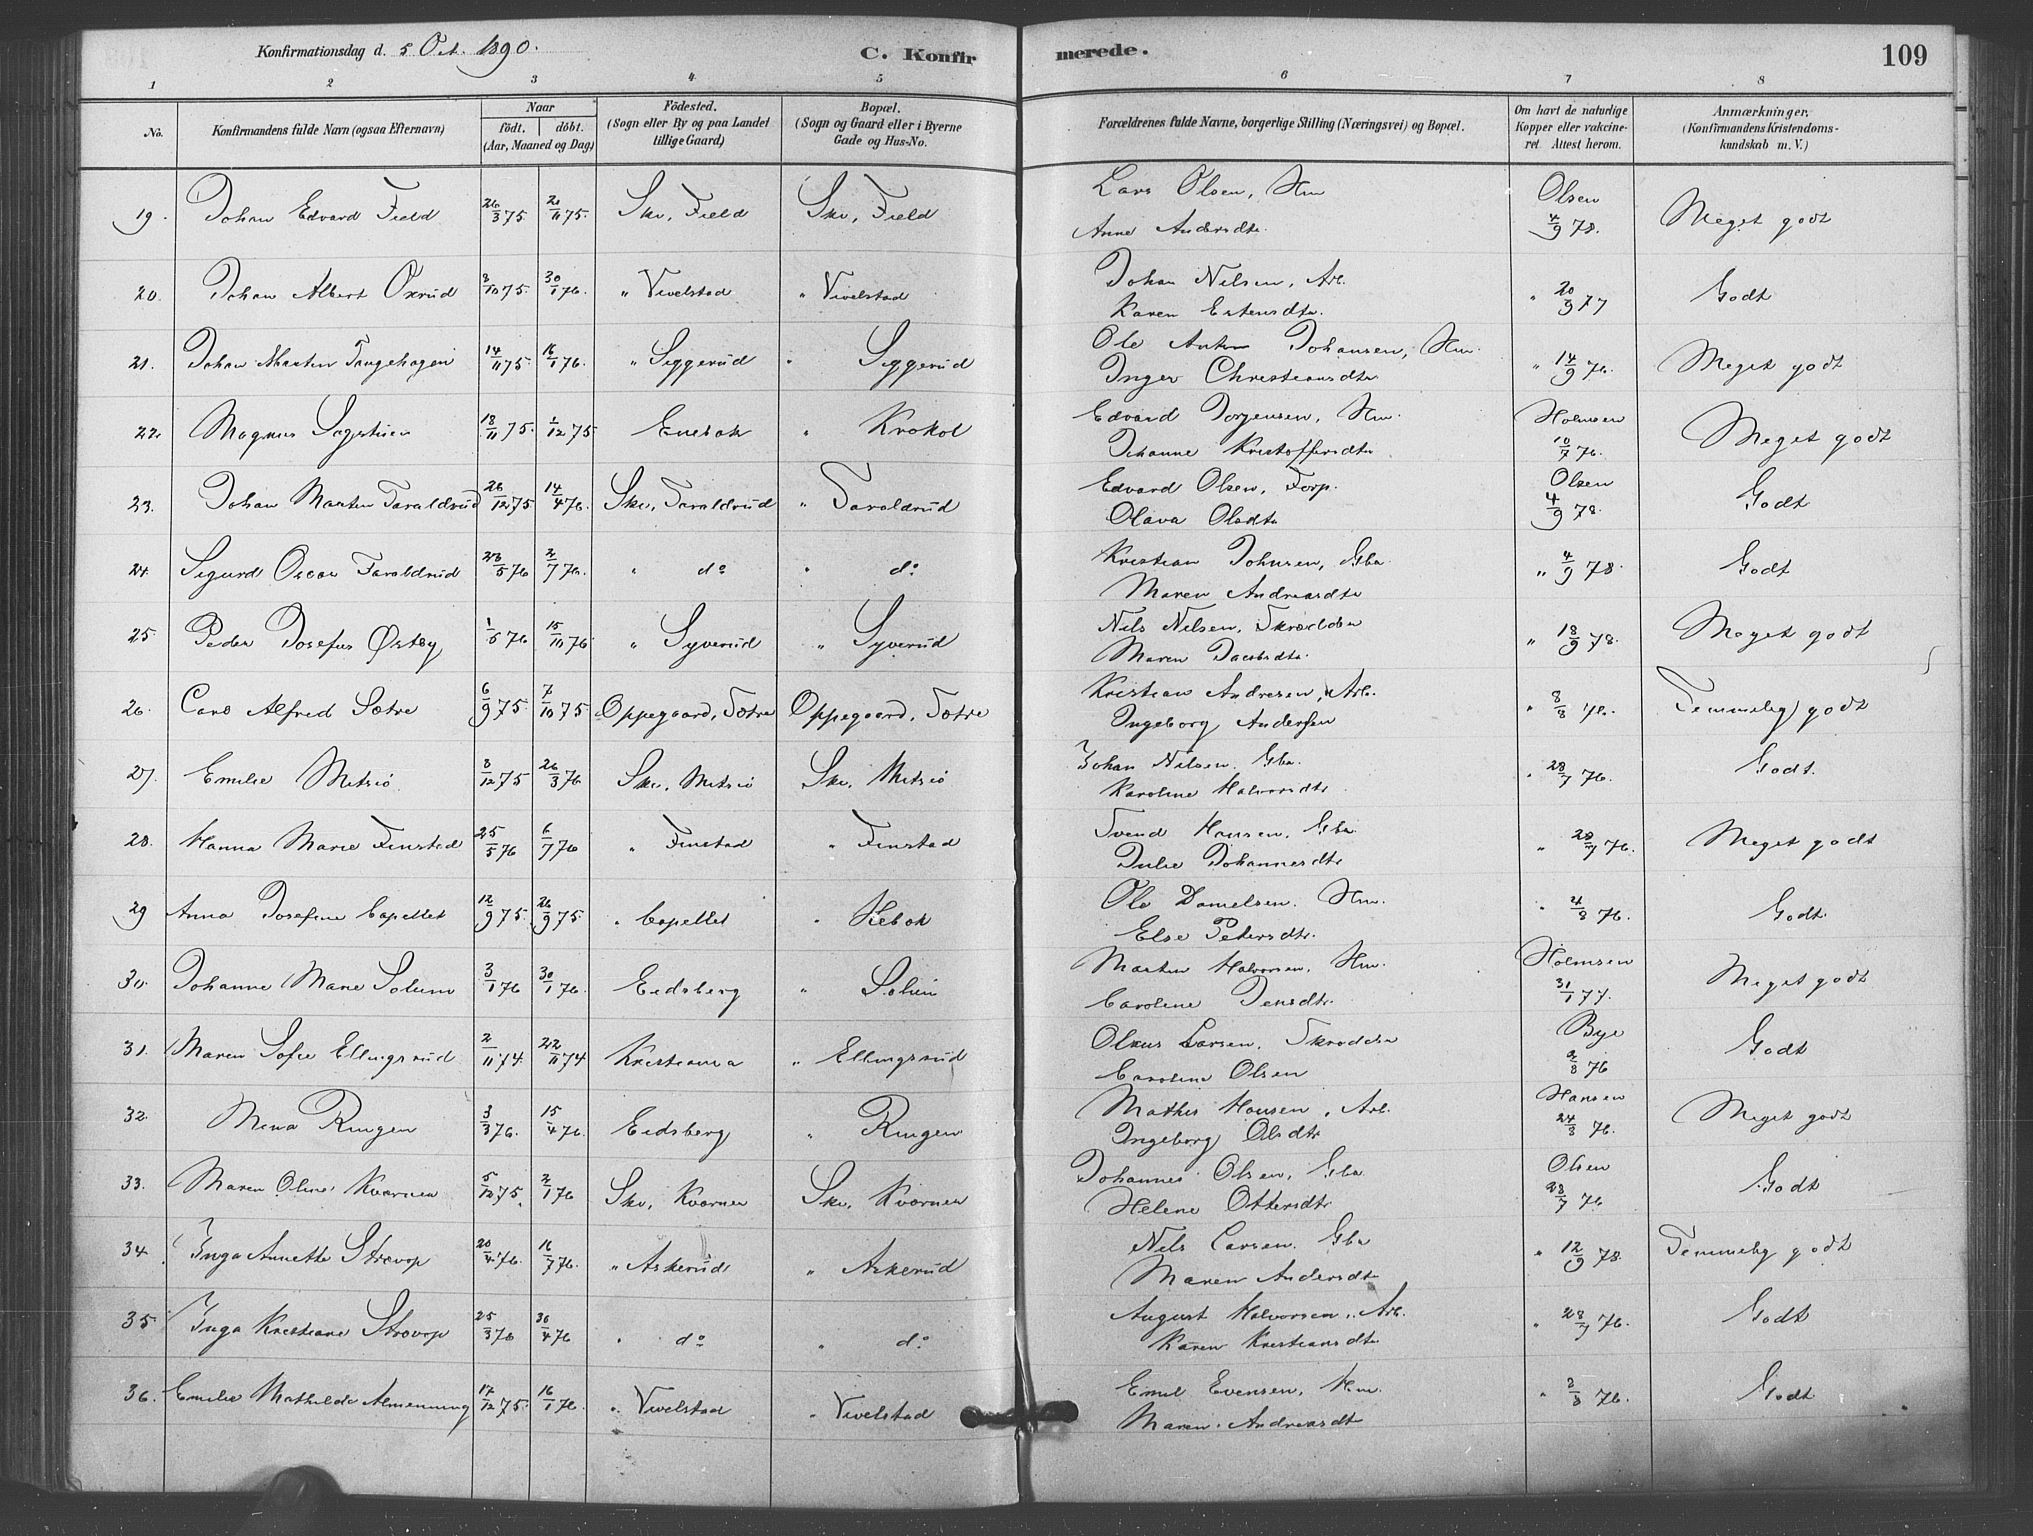 Konfirmationsdag d. 5 Oct. 1890.
C. Konfirmerede.
109
1 2 3 4 5 6 7 8
No. Konfirmandens fulde Navn (ogsaa Efternavn) Naar födt. döbt. (Aar, Maaned og Dag) Födested. (Sogn eller By og paa Landet tillige Gaard) Bopæl. (Sogn og Gaard eller i Byerne Gade og Hus-No. Forældrenes fulde Navne, borgerlige Stilling (Næringsvei) og Bopæl. Om havt de naturlige Kopper eller vakcineret. Attest herom. Anmærkninger. (Konfirmandens Kristendomskundskab m. V.)
19. Johan Edvard Field 26/3 75. 21/11 75. Ski, Field Ski, Field Lars Olsen, Hm Olsen 4/9 78. Meget godt
Anne Andersdtr.
20. Johan Albert Oxrud 3/10 75. 30/1 76. " Vevelstad " Vevelstad Johan Nilsen, Arb. " 20/9 77 Godt
Karen Estensdtr.
21. Johan Martin Tangehagen 14/11 75. 16/1 76. " Siggerud " Siggerud Ole Anton Johansen, Hm. " 14/9 76. Meget godt
Inger Christiansdtr
22. Magnus Sagstuen 18/11 75. 1/12 75 Enebak " Krokol Edvard Jorgensen, Hm. Holmsen 10/7 76. Meget godt
Johanne Kristoffersdtr
23. Johan Martin Taraldrud 26/12 75 14/4 76. Ski, Taraldrud " Taraldrud Edvard Olsen, Forp. Olsen 4/9 78. Godt
Olava Olsdtr
24. Sigurd Oscar Taraldrud 23/5 76 2/7 76. " do " do Kristian Johnsen, Gba " 4/9 78. Godt
Maren Andreasdtr
25. Peder Josefus Østby 1/5 76 15/10 76 " Syverud " Syverud Nils Nilsen, Skrædder " 18/9 78. Meget godt
Maren Jacobsdtr.
26. Carl Alfred Sætre 6/9 75. 7/10 75 Oppegaard, Sætre Oppegaard, Sætre Kristian Andresen, Arb. " 8/8 76. Temmelig godt
Ingeborg Andersen
27. Emilie Midtsjø 8/12 75 26/3 76 Ski, Mitsiö Ski, Mitsiö Johan Nilsen, Gba. " 28/7 76. Godt.
Karoline Halvorsdtr.
28. Hanna Marie Finstad 25/5 76 6/7 76 " Finstad " Finstad Svend Hansen, Gba " 28/7 76. Meget godt
Julie Johannesdtr
29 Anna Josefine Capellet 12/9 75. 26/9 75. " Capellet " Hebok Ole Danielsen, Hm. " 21/8 76. Godt.
Else Petersdtr.
30. Johanne Marie Solum 3/1 76 30/1 76. Eidsberg " Solum Martin Halvorsen, Hm. Holmsen 31/1 77. Meget godt
Caroline Jensdtr.
31. Maren Sofie Ellingsrud 2/11 74. 22/11 74 Kristiania " Ellingsrud Olaus Larsen, Skrædder Bye 2/8 76 Godt
Caroline Olsen
32. Mina Ringen 3/3 76. 15/4 76. Eidsberg " Ringen Mathis Hansen, Arb. Hansen 24/8 76. Meget godt
Ingeborg Olsdtr
33. Maren Oline Kværnen 5/12 75. 2/1 76 Ski, Kværnen Ski, Kværnen Johannes Olsen, Gba Olsen 28/7 76 Godt
Helene Ottersdtr
34. Inga Annette Strevop 20/4 76. 16/7 76. " Askerud " Askerud Nils Larsen, Gba " 12/9 78. Temmelig godt
Maren Andersdtr
35 Inga Kristiane Strevop 25/3 76 30/4 76 " do " do August Halvorsen, Arb. " 28/7 76. Godt
Karen Kristiansdtr
36. Emilie Mathilde Almenning 17/12 75. 16/1 76. " Vevelstad " Vevelstad Emil Evensen, Hm. " 2/8 76. Godt
Maren Andreasdtr